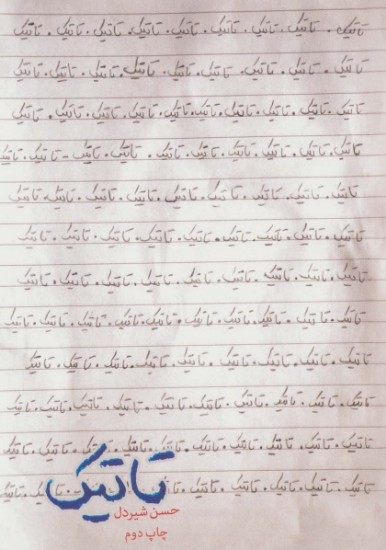 تاتیک . تاتیک . تاتیک . تاتیک . تاتیک . تاتیک . تاتیک . تاتیک . تاتیک
تاتیک . تاتیک . تاتیک . تاتیک . تاتیک . تاتیک . تاتیک . تاتیک . تاتیک
تاتیک . تاتیک . تاتیک . تاتیک . تاتیک . تاتیک . تاتیک . تاتیک . تاتیک . تاتیک
تاتیک . تاتیک . تاتیک . تاتیک . تاتیک . تاتیک . تاتیک . تاتیک - تاتیک . تاتیک
تاتیک . تاتیک . تاتیک . تاتیک . تاتیک . تاتیک . تاتیک . تاتیک . تاتیک
تاتیک . تاتیک . تاتیک . تاتیک . تاتیک . تاتیک . تاتیک . تاتیک . تاتیک
تاتیک . تاتیک . تاتیک . تاتیک . تاتیک . تاتیک . تاتیک . تاتیک . تاتیک
تاتیک . تاتیک . تاتیک . تاتیک . تاتیک . تاتیک . تاتیک . تاتیک . تاتیک . تاتیک
تاتیک . تاتیک . تاتیک . تاتیک . تاتیک . تاتیک . تاتیک . تاتیک . تاتیک
تاتیک . تاتیک . تاتیک . تاتیک . تاتیک . تاتیک . تاتیک . تاتیک . تاتیک . تاتیک
تاتیک . تاتیک . تاتیک . تاتیک . تاتیک . تاتیک . تاتیک . تاتیک . تاتیک . تاتیک
تاتیک . تاتیک . تاتیک . تاتیک . تاتیک . تاتیک . تاتیک . تاتیک
تاتیک
حسن شیردل
چاپ دوم